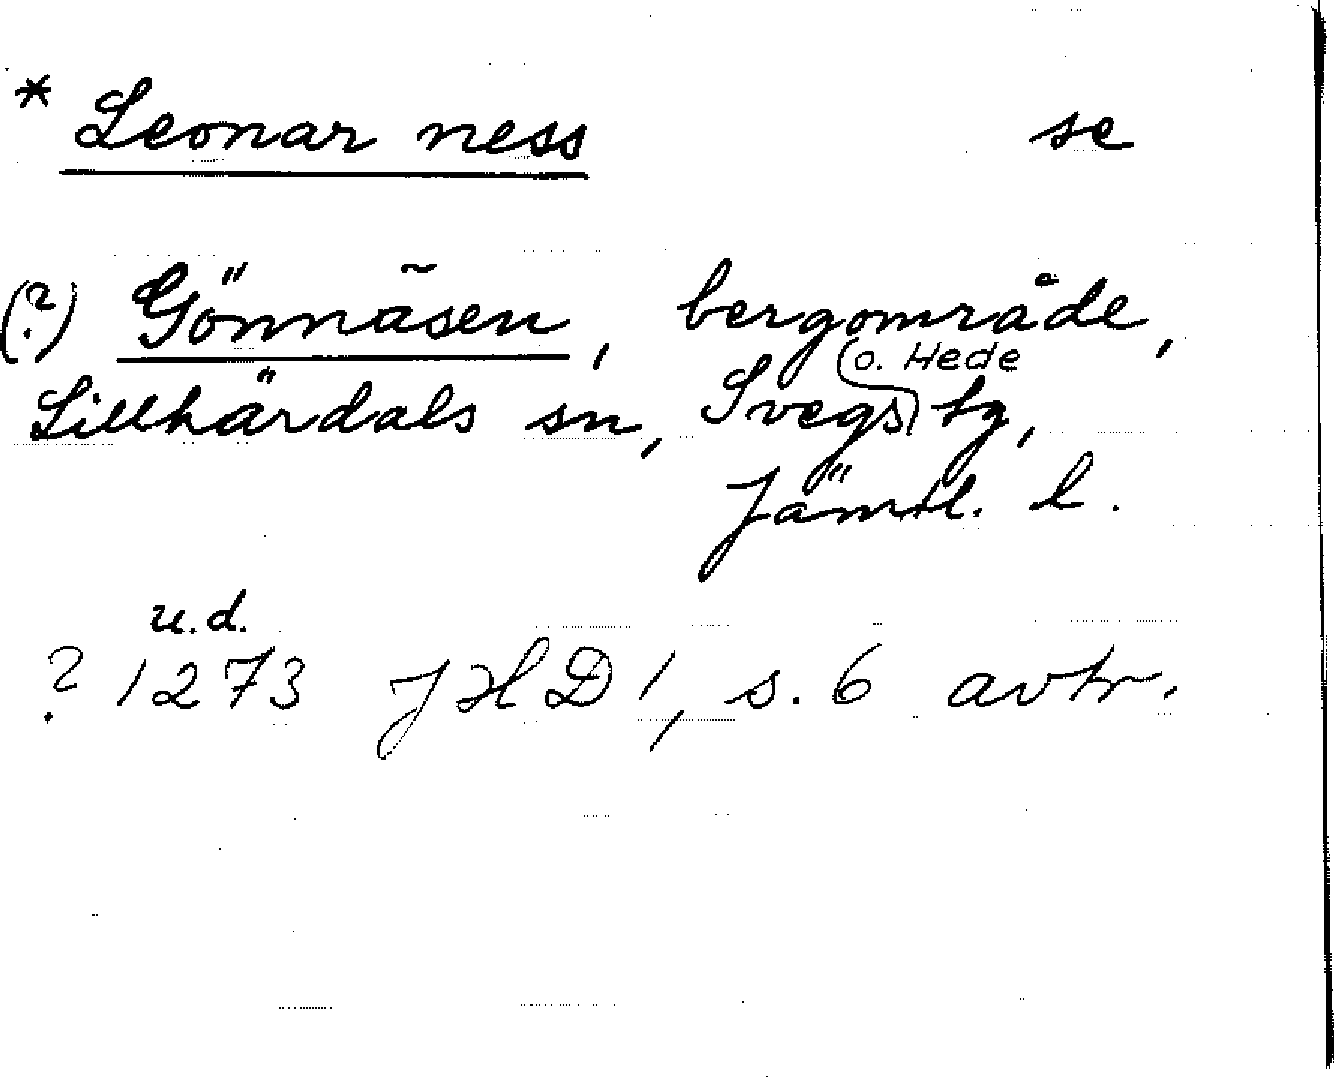 * Leonar ness se
(?) Gönnåsen, bergområde,
Lillhärdals sn, Svegs o. Hede tg,
Jämtl. l.
u.d.
? 1273 JHD 1, s. 6 avtr.